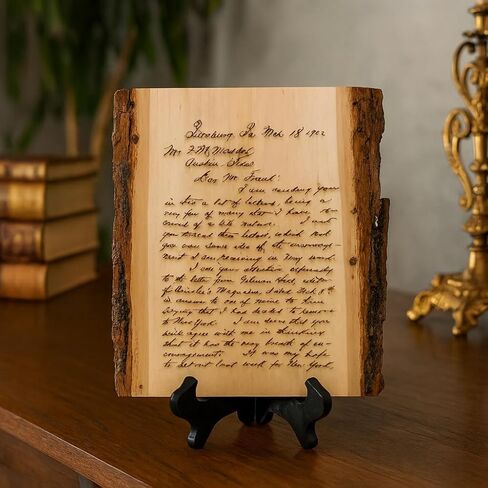 Pittsburg, Pa Mch 18 1902
Mr F. M. Maddox
Austin Texas
Dear Mr. Frank:
I am sending you
in this a lot of letters, being a
very few of many that I have re-
ceived of a like nature. I want
you to read these letters, which will give
you some idea of the encourage-
ment I am receiving in my work.
I call your attention especially
to the letter from Gilman Hall, editor
of Ainslee's Magazine, dated Feb. 8th
in answer to one of mine to him
saying that I had decided to remove
to New York. I am sure that you
will agree with me in thinking
that it has the very breath of en-
couragement. It was my hope
to set out last week for New York